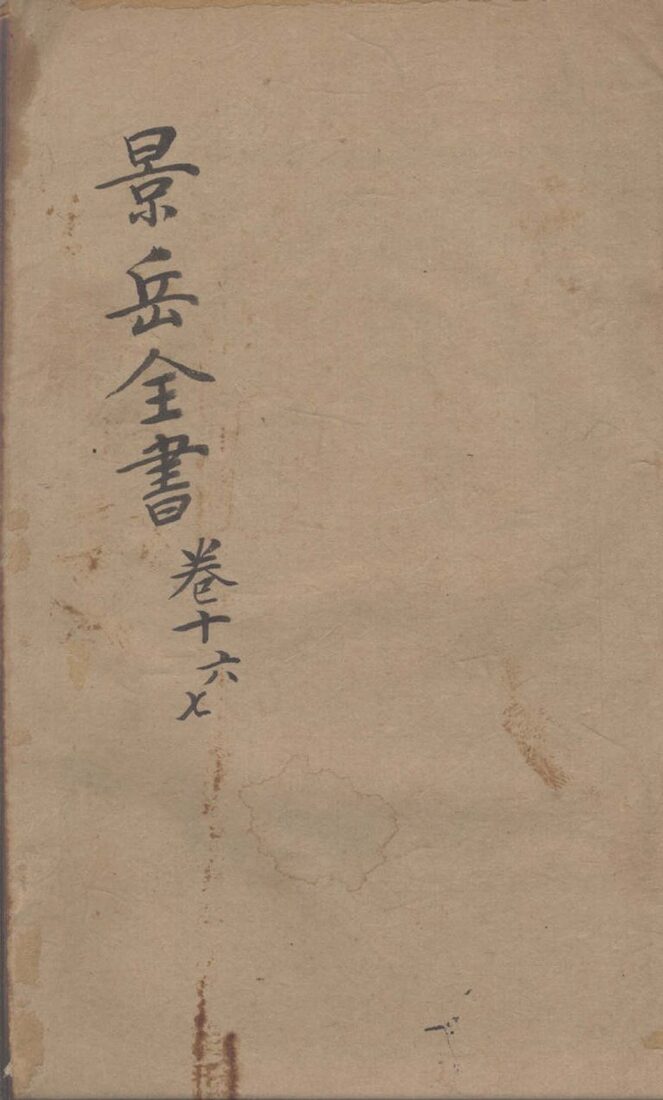 景岳全書
卷十六七